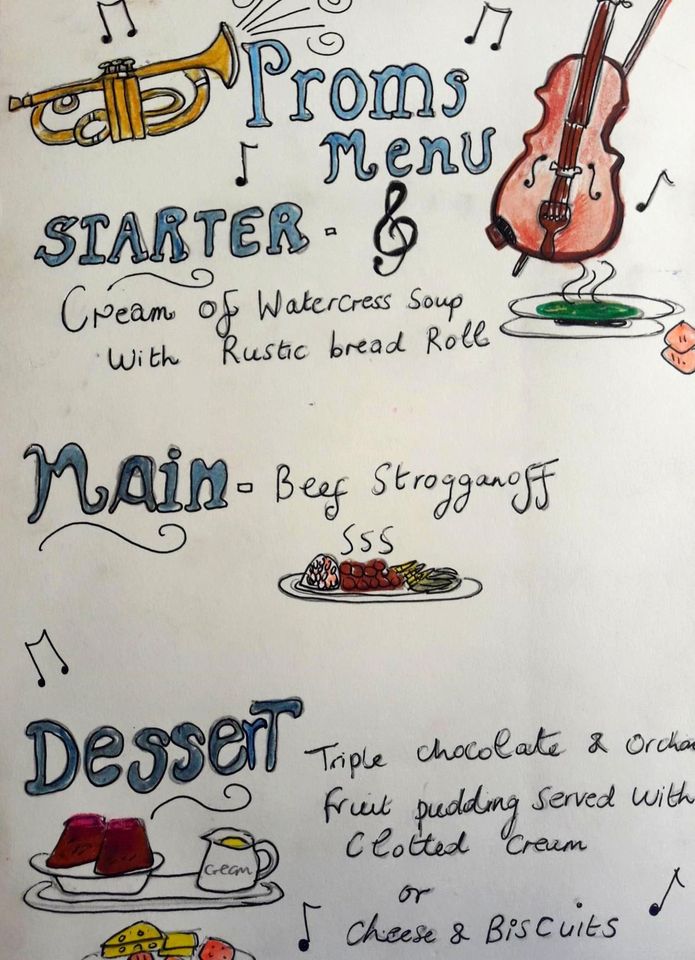 Proms
Menu
STARTER -
Cream of Watercress Soup
With Rustic bread Roll
Main - Beef Strogganoff
Dessert
Triple chocolate &
fruit pudding Served With
Clotted Cream
or
Cheese & BisCuits
Cream